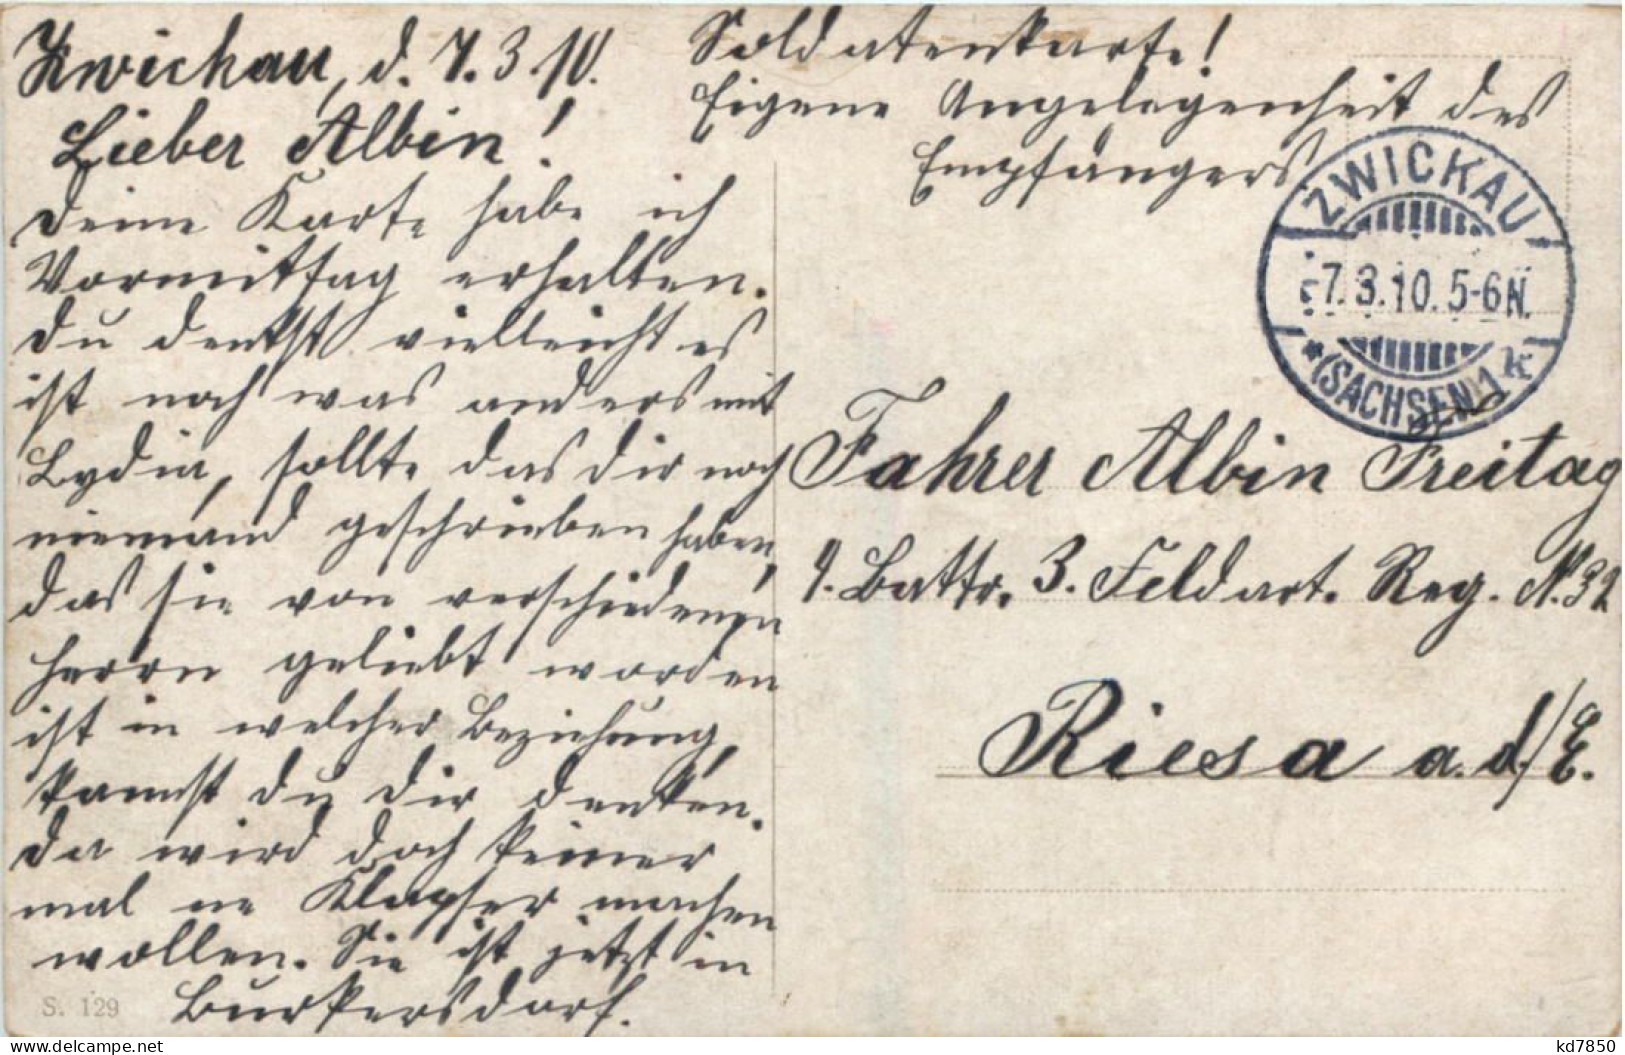 Zwickau, d. 7.3.10.
Lieber Albin!
Deine Karte habe ich
Vormittag erhalten.
Du denkst vielleicht es
ist noch was anders mit
Lydia, sollte das dir noch
niemand geschrieben haben,
das sie von verschiedenen
Herrn geliebt worden
ist in welcher Beziehung,
kannst du dir denken.
Da wird doch keiner
mal ne machen
wollen. Sie ist jetzt in
Burkersdorf.
S. 129
Soldatenkarte!
Eigene Angelegenheit des
Empfängers
ZWICKAU
7.3.10. 5-6N.
*(SACHSEN)1*
Fahrer Albin Freitag
Battr. 3. Feldart. Reg. N. 32
Riesa a.d./E.
www.delcampe.net
kd7850